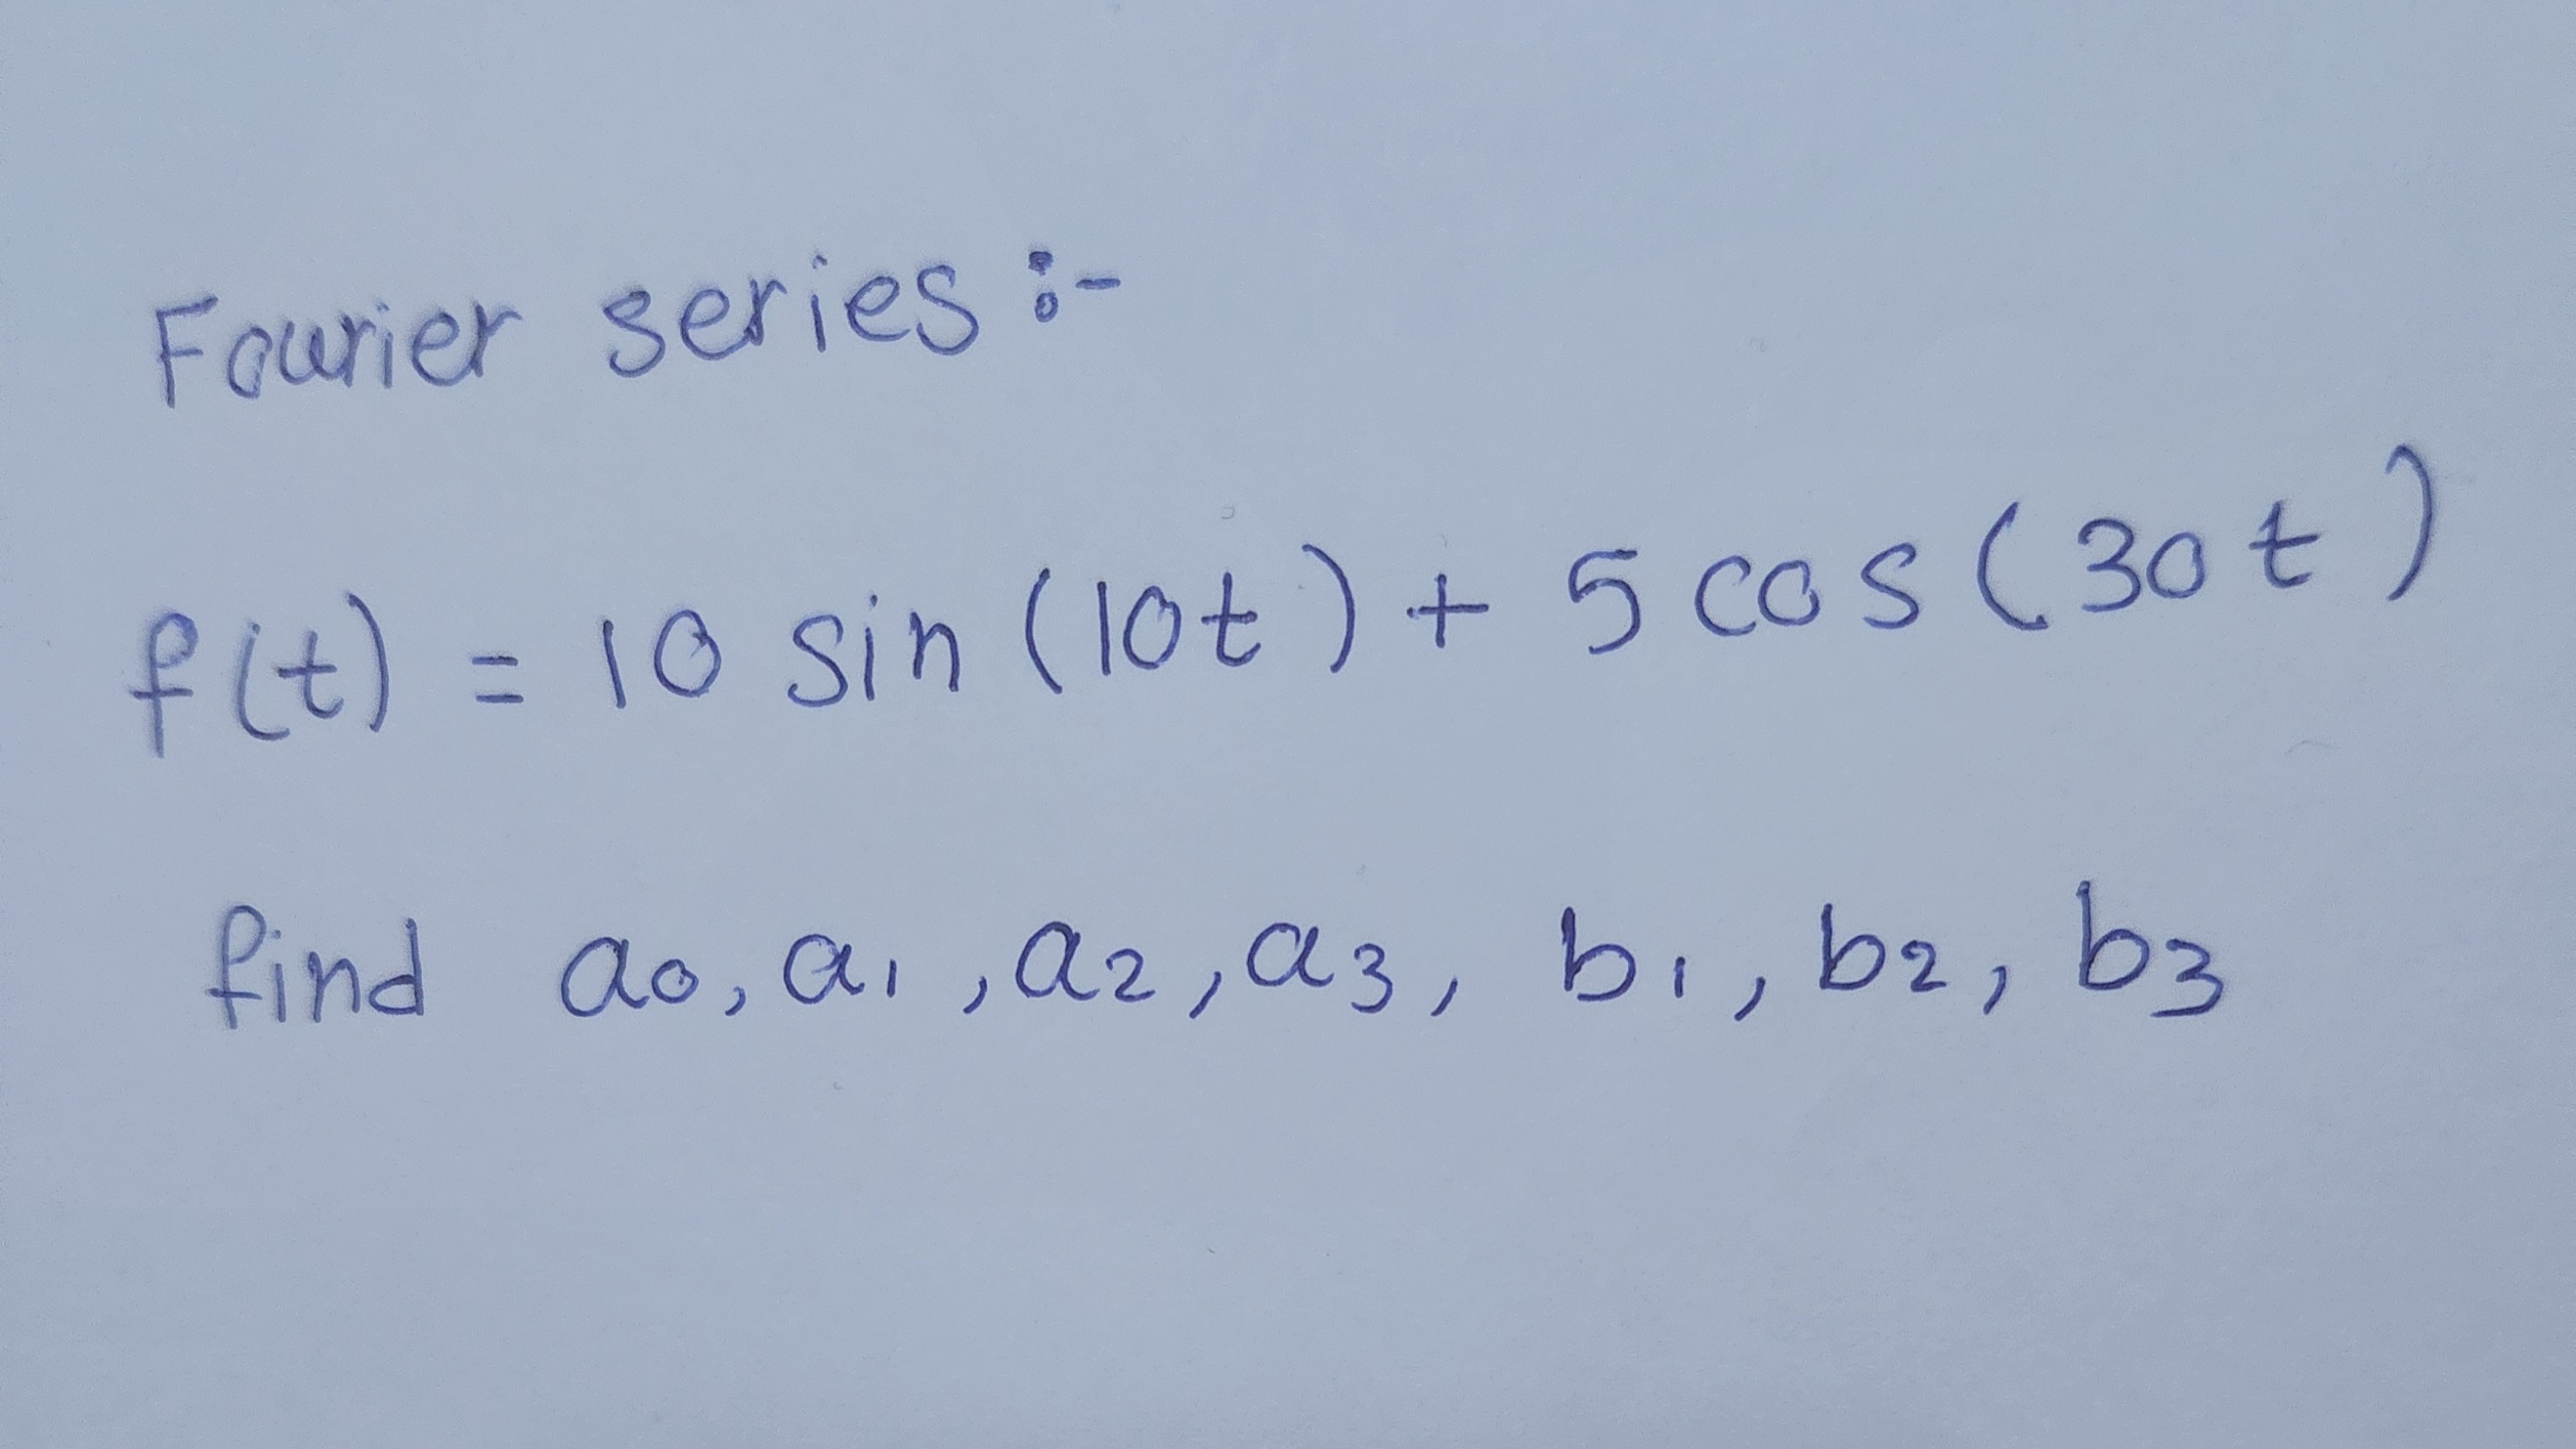 Fourier series :-
f(t) = 10 sin (10t) + 5 cos (30t)
find a0, a1, a2, a3, b1, b2, b3